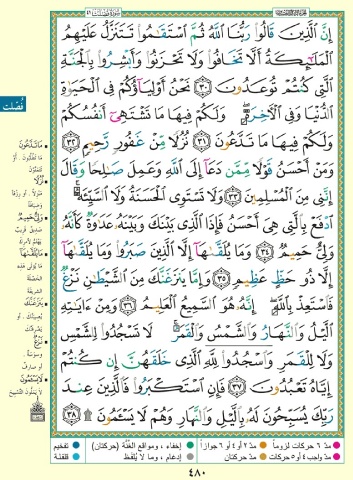 إِنَّ ٱلَّذِينَ قَالُوا۟ رَبُّنَا ٱللَّهُ ثُمَّ ٱسْتَقَـٰمُوا۟ تَتَنَزَّلُ عَلَيْهِمُ
ٱلْمَلَـٰٓئِكَةُ أَلَّا تَخَافُوا۟ وَلَا تَحْزَنُوا۟ وَأَبْشِرُوا۟ بِٱلْجَنَّةِ
ٱلَّتِى كُنتُمْ تُوعَدُونَ ٣٠ نَحْنُ أَوْلِيَآؤُكُمْ فِى ٱلْحَيَوٰةِ
ٱلدُّنْيَا وَفِى ٱلْـَٔاخِرَةِ ۖ وَلَكُمْ فِيهَا مَا تَشْتَهِىٓ أَنفُسُكُمْ
وَلَكُمْ فِيهَا مَا تَدَّعُونَ ٣١ نُزُلًا مِّنْ غَفُورٍ رَّحِيمٍ ٣٢
وَمَنْ أَحْسَنُ قَوْلًا مِّمَّن دَعَآ إِلَى ٱللَّهِ وَعَمِلَ صَـٰلِحًا وَقَالَ
إِنَّنِى مِنَ ٱلْمُسْلِمِينَ ٣٣ وَلَا تَسْتَوِى ٱلْحَسَنَةُ وَلَا ٱلسَّيِّئَةُ ۚ
ٱدْفَعْ بِٱلَّتِى هِىَ أَحْسَنُ فَإِذَا ٱلَّذِى بَيْنَكَ وَبَيْنَهُۥ عَدَٰوَةٌ كَأَنَّهُۥ
وَلِىٌّ حَمِيمٌ ٣٤ وَمَا يُلَقَّىٰهَآ إِلَّا ٱلَّذِينَ صَبَرُوا۟ وَمَا يُلَقَّىٰهَآ
إِلَّا ذُو حَظٍّ عَظِيمٍ ٣٥ وَإِمَّا يَنزَغَنَّكَ مِنَ ٱلشَّيْطَـٰنِ نَزْغٌ
فَٱسْتَعِذْ بِٱللَّهِ ۖ إِنَّهُۥ هُوَ ٱلسَّمِيعُ ٱلْعَلِيمُ ٣٦ وَمِنْ ءَايَـٰتِهِ
ٱلَّيْلُ وَٱلنَّهَارُ وَٱلشَّمْسُ وَٱلْقَمَرُ ۚ لَا تَسْجُدُوا۟ لِلشَّمْسِ
وَلَا لِلْقَمَرِ وَٱسْجُدُوا۟ لِلَّهِ ٱلَّذِى خَلَقَهُنَّ إِن كُنتُمْ
إِيَّاهُ تَعْبُدُونَ ٣٧ فَإِنِ ٱسْتَكْبَرُوا۟ فَٱلَّذِينَ عِندَ
رَبِّكَ يُسَبِّحُونَ لَهُۥ بِٱلَّيْلِ وَٱلنَّهَارِ وَهُمْ لَا يَسْـَٔمُونَ ۩ ٣٨
فُصِّلَت
مَا تَدَّعُونَ
نُزُلًا
وَلِىٌّ حَمِيمٌ
مَا يُلَقَّىٰهَا
يَنزَغَنَّكَ
نَزْغٌ
لَا يَسْـَٔمُونَ
مدّ ٦ حركات لزوماً مدّ ٢ أو ٤ أو ٦ جوازاً إخفاء، ومواقع الغُنَّة (حركتان) تفخيم
مدّ واجب ٤ أو ٥ حركات مدّ حركتان إدغام، وما لا يُلفَظ قلقلة
٤٨٠